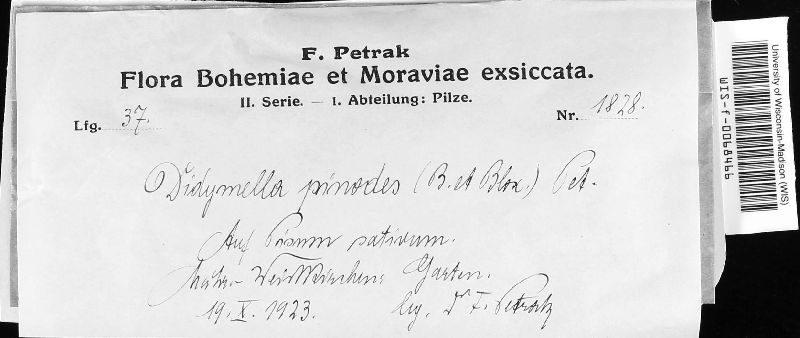 F. Petrak
Flora Bohemiae et Moraviae exsiccata.
II. Serie. — I. Abteilung: Pilze.
Lfg. 37.
Nr. 1828.
Didymella pinodes (B. et Blox.) Pet.
Auf Pisum sativum.
Mähr.- Weisskirchen: Garten.
19. X. 1923.
leg. Dr F. Petrak
University of Wisconsin-Madison (WIS)
WIS-f-0068466